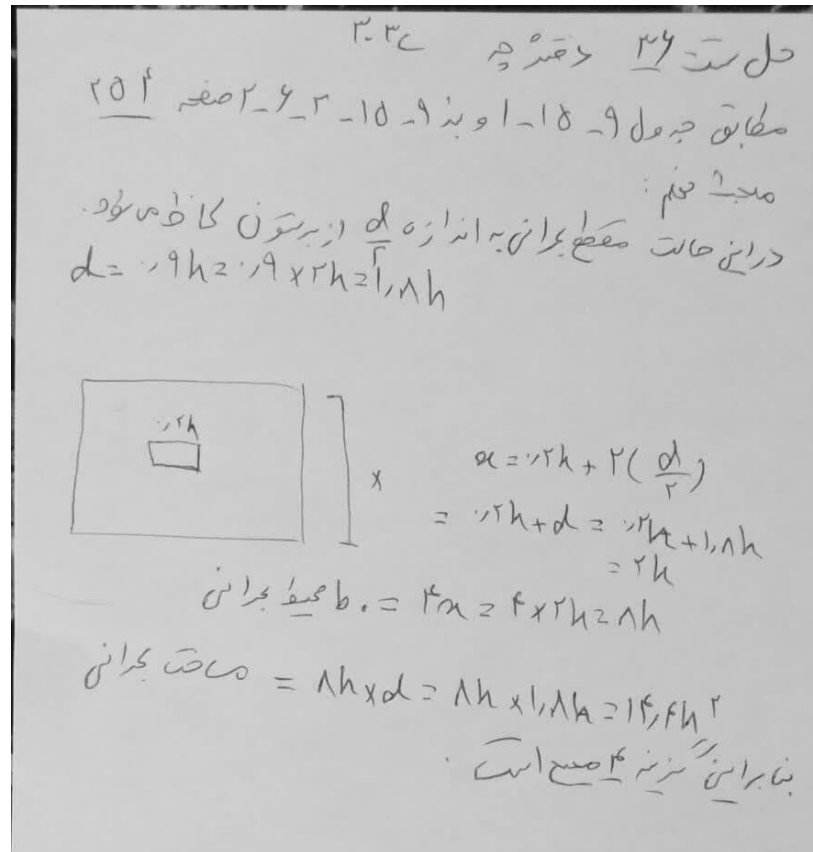 حل تست ۳۶ دفترچه ۳۰۳C
مطابق جدول ۹-۱۵-۱ و بند ۹-۱۵-۲-۶-۲ صفحه ۲۵۴
مبحث نهم:
در این حالت مقطع بحرانی به اندازه d/۲ از بر ستون لحاظ می شود.
d = ۰٫۹h = ۰٫۹ × ۲h = ۱٫۸h
۰٫۲h
x
x = ۰٫۲h + ۲(d/۲)
= ۰٫۲h + d = ۰٫۲h + ۱٫۸h
= ۲h
محیط بحرانی b₀ = ۴x = ۴ × ۲h = ۸h
مساحت بحرانی = ۸h × d = ۸h × ۱٫۸h = ۱۴٫۴h²
بنابراین گزینه ۴ صحیح است.